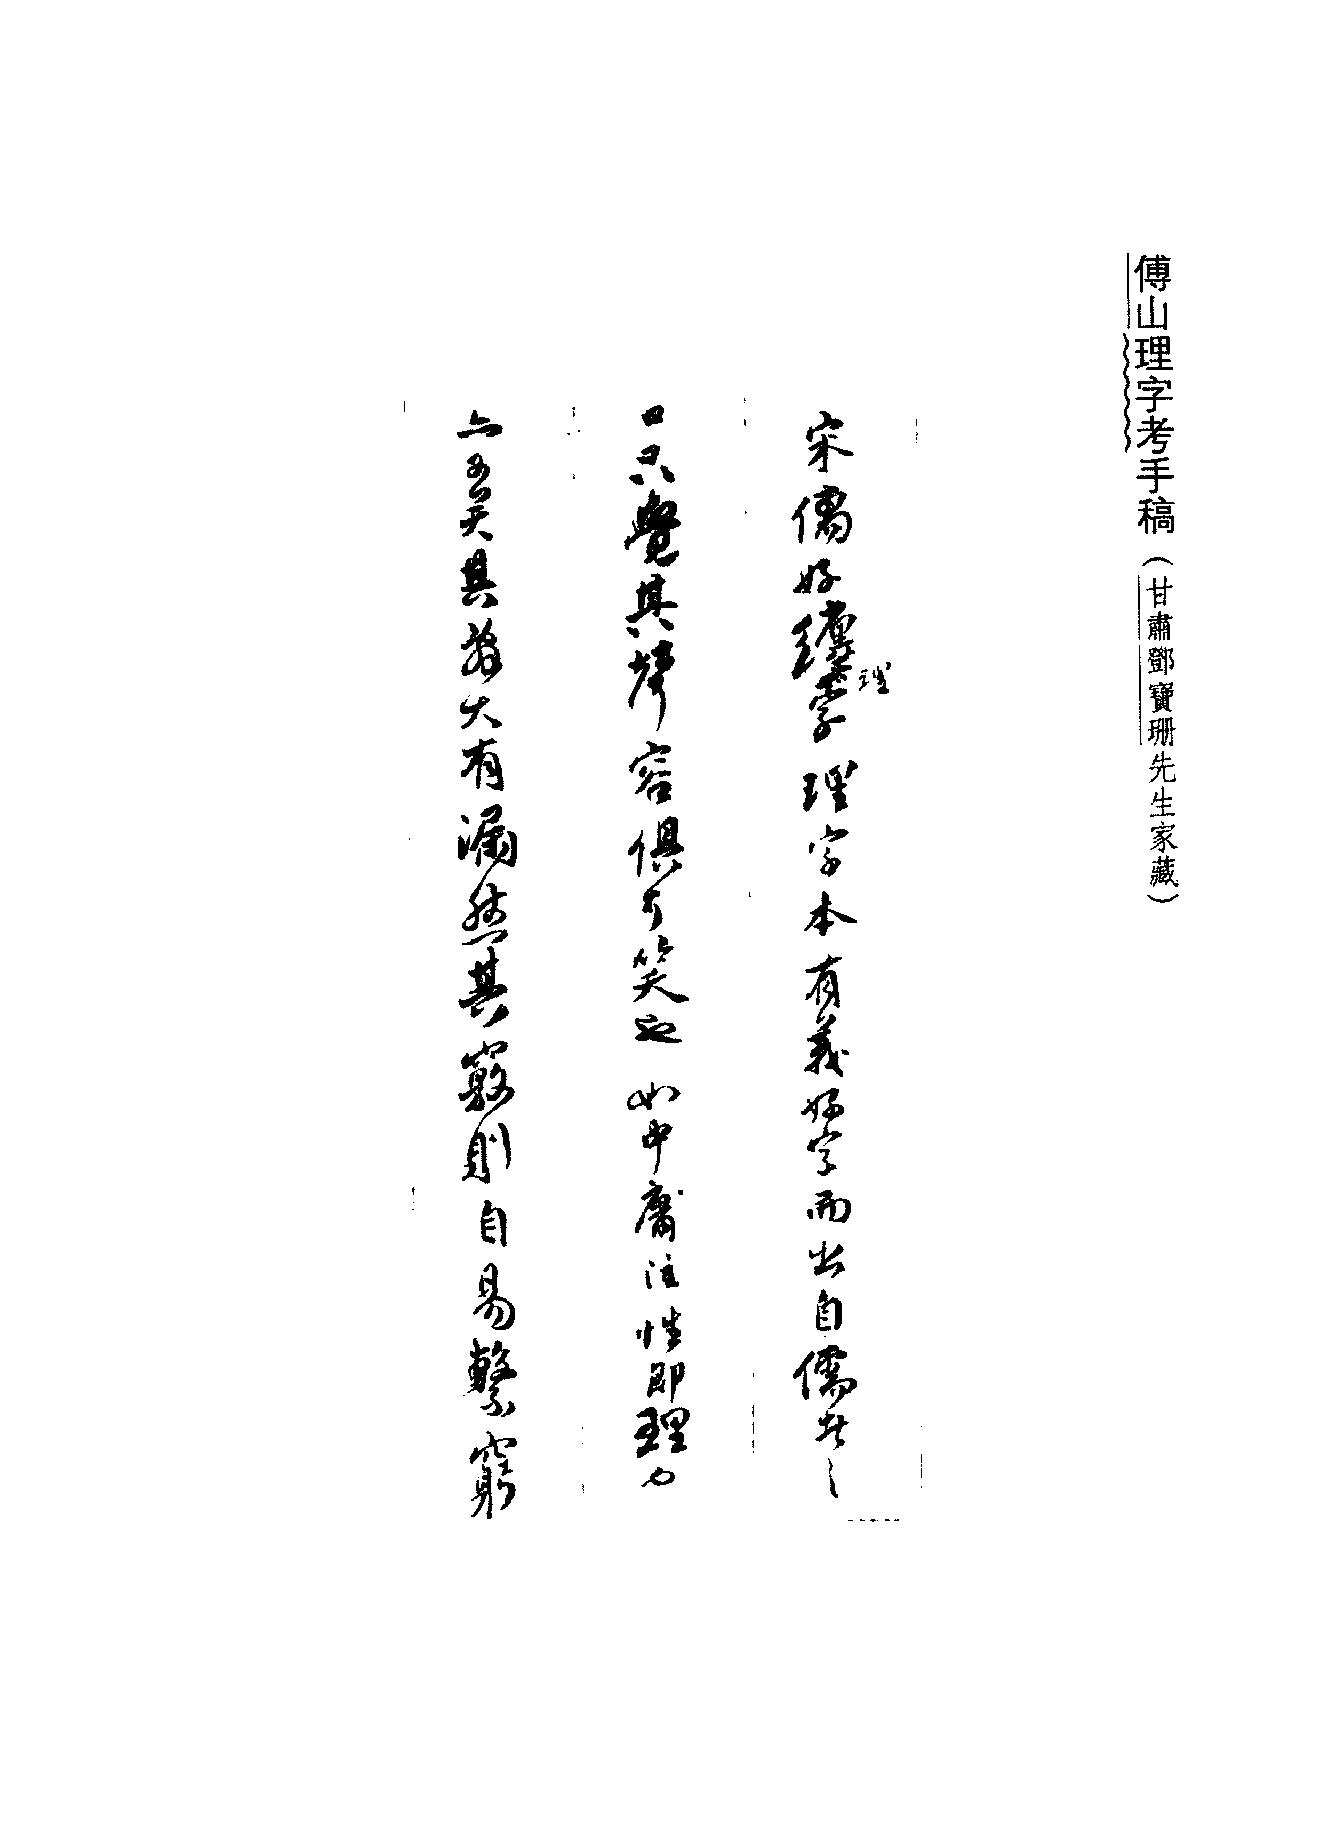 傅山理字考手稿（甘肅鄧寶珊先生家藏）
宋儒好理字理字本有義好字而出自儒者之
口只覺其聲容俱可笑也如中庸注性即理也
亦其大有漏然其窾則自易繫窮